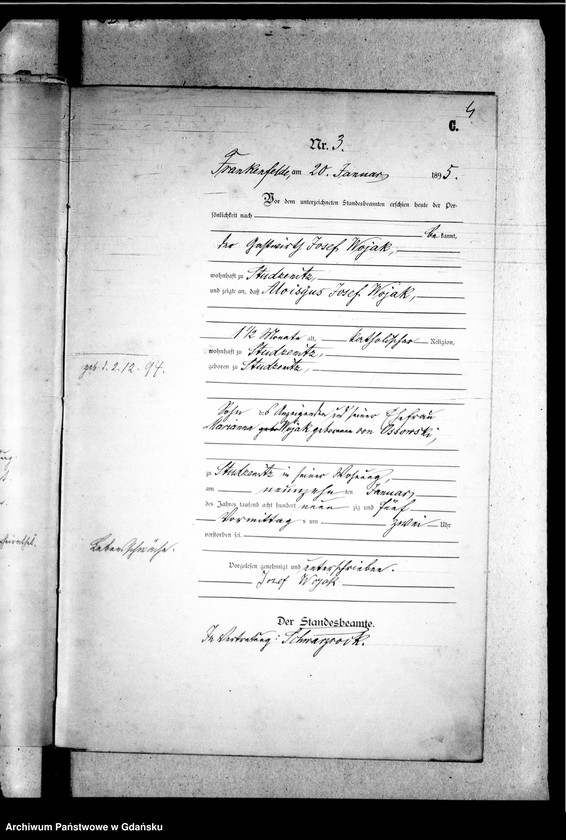 4
C.
Nr. 3.
Frankenfelde, am 20. Januar 1895.
Vor dem unterzeichneten Standesbeamten erschien heute der Per-
sönlichkeit nach
be kannt,
der Gastwirth Josef Wojak,
wohnhaft zu Studzenitz,
und zeigte an, daß Aloisyus Josef Wojak,
1 1/2 Monate alt, katholischer Religion,
wohnhaft zu Studzenitz,
geb. d. 2.12.94.
geboren zu Studzenitz,
Sohn des Anzeigenden und seiner Ehefrau
Marianna Wojak geborene von Ossowski,
zu Studzenitz in seiner Wohnung,
am neunzehnten Januar
des Jahres tausend acht hundert neunzig und fünf
Vormittags um zwei Uhr
verstorben sei.
Lebensschwäche.
Vorgelesen genehmigt und unterschrieben.
Josef Wojak
Der Standesbeamte.
In Vertretung: Schwarzrock.
Archiwum Państwowe w Gdańsku